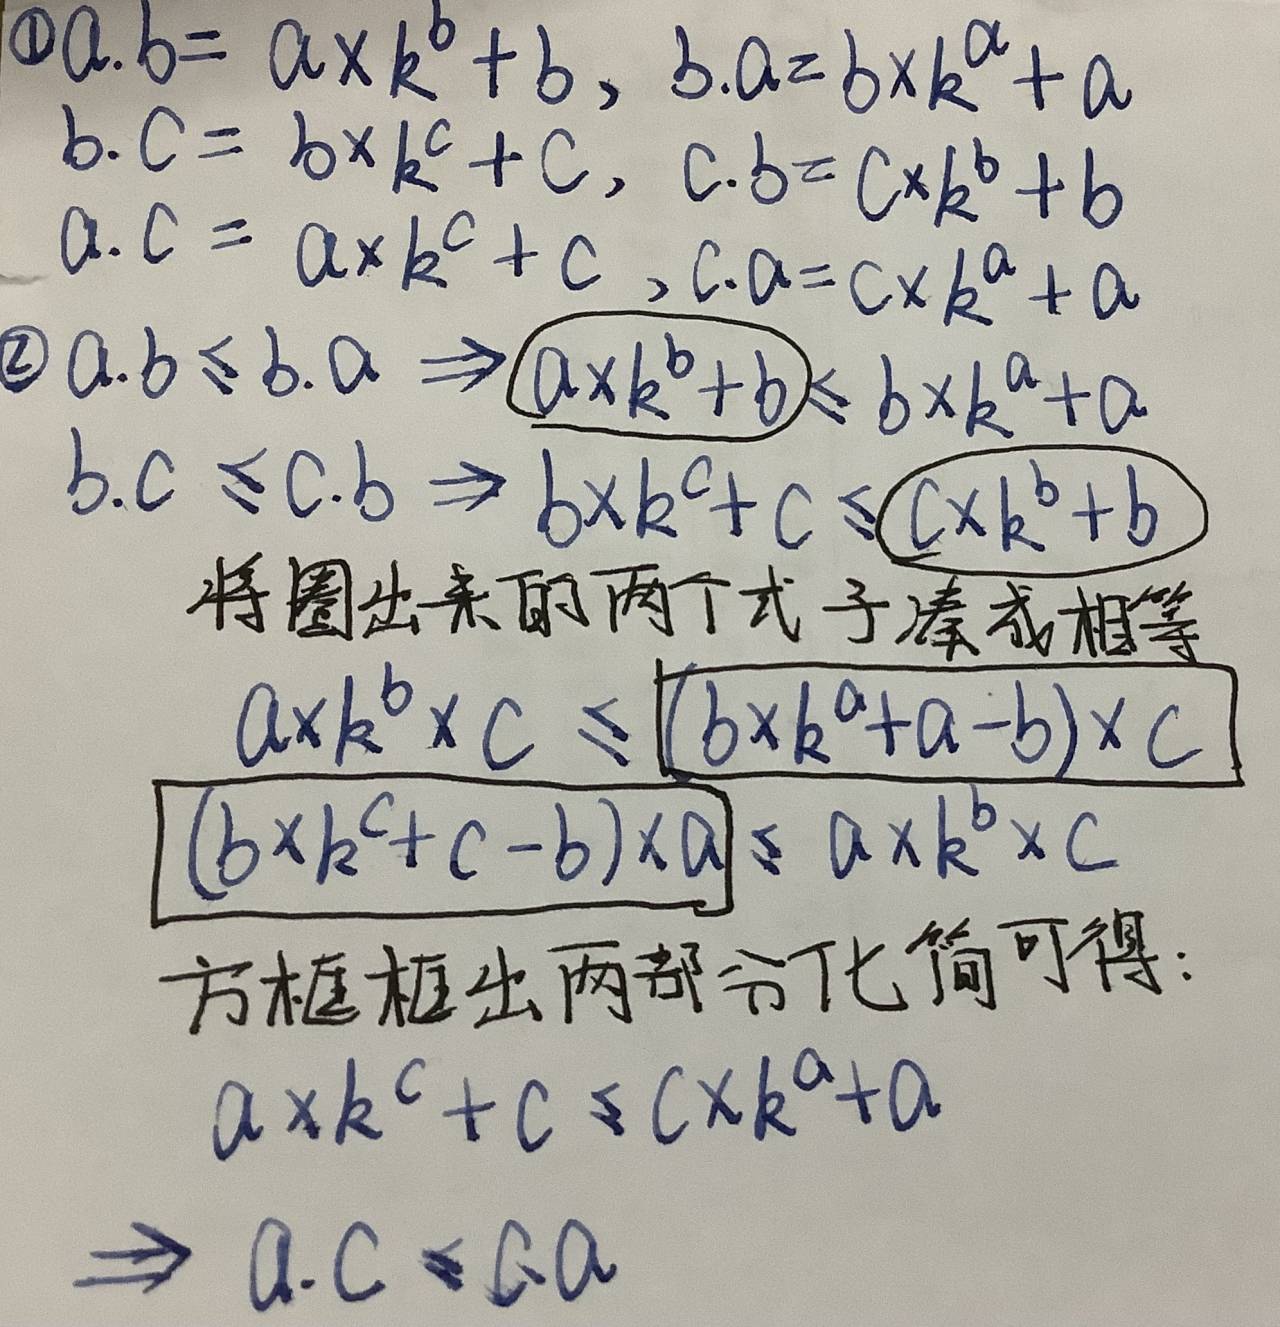 ①a.b= a×k^b+b, b.a=b×k^a+a
b.c= b×k^c+c, c.b=c×k^b+b
a.c= a×k^c+c, c.a=c×k^a+a
②a.b≤b.a ⇒ a×k^b+b≤b×k^a+a
b.c≤c.b ⇒ b×k^c+c≤c×k^b+b
将圈出来的两个式子凑成相等
a×k^b×c≤(b×k^a+a-b)×c
(b×k^c+c-b)×a≤a×k^b×c
方框框出两部分化简可得:
a×k^c+c≤c×k^a+a
⇒ a.c≤c.a